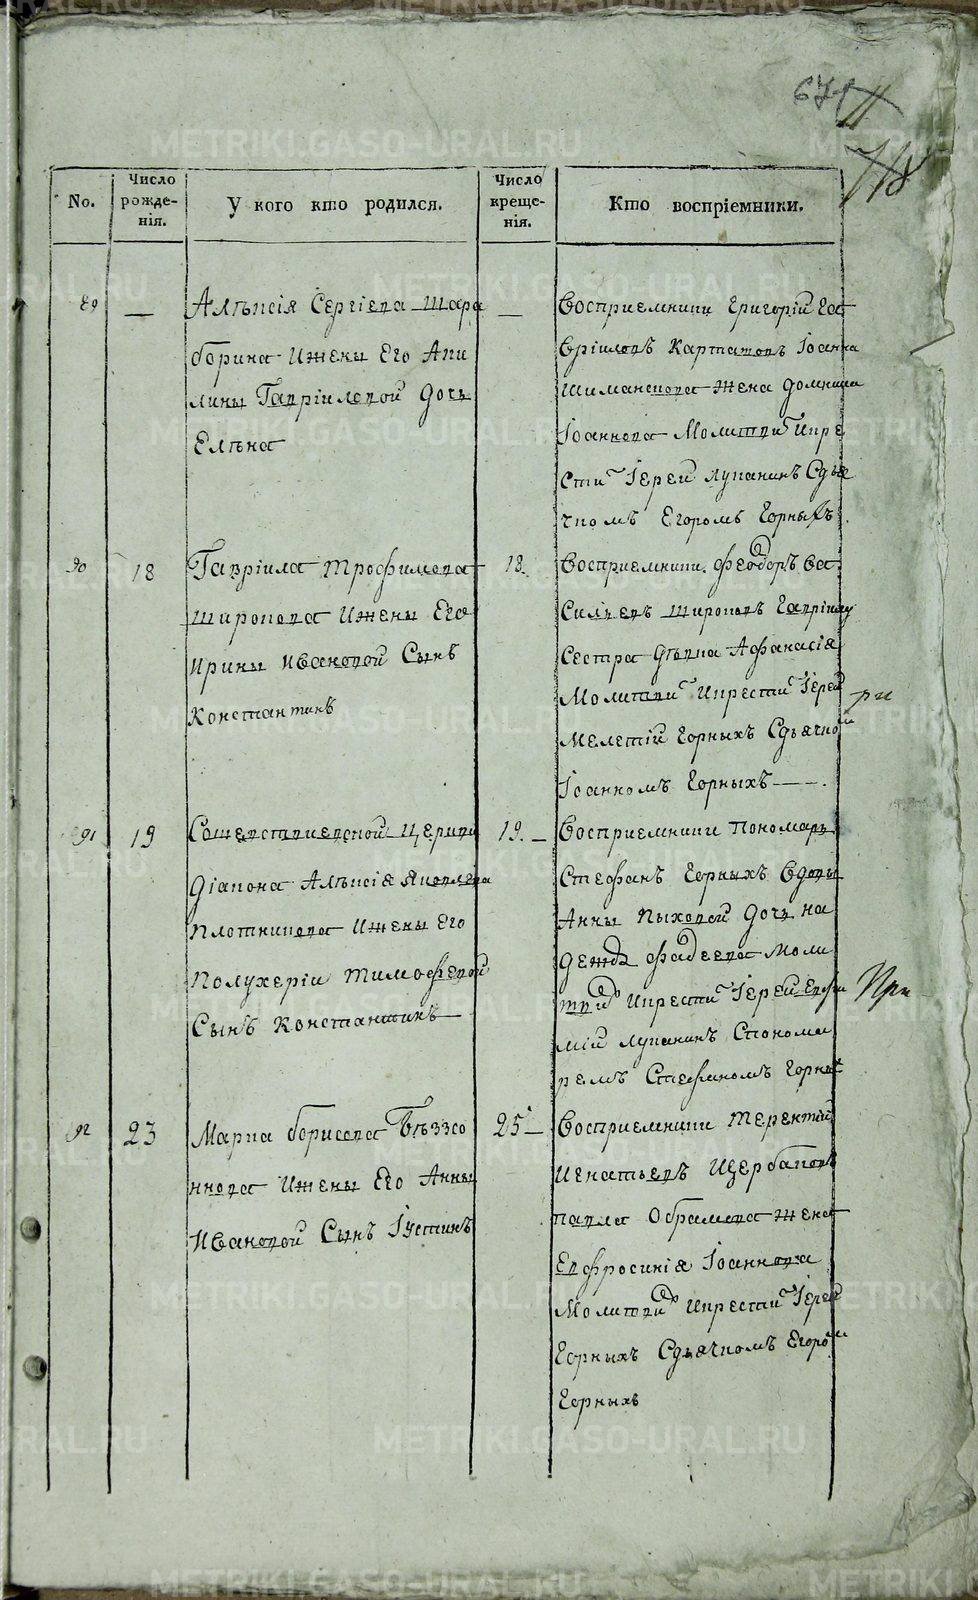 671 11
718
No.
Число рожде-нія.
У кого кто родился.
Число креще-нія.
Кто воспріемники.
89 —
Алѣксія Сергіева Шара
борина Ижены Его Аки
лины Гавріиловой дочь
Елѣна
—
Восприемники Григорій Га
вріиловъ Карпатовъ Іоанна
Жена Домника
Іоаннова Молитви Ипре
сти Іерей Лукинъ Сдья
чкомъ Егоромъ Горныхъ
90 18
Гавріила Трофимова
Широкова Ижены Его
Ирины Ивановой Сынъ
Константинъ
18.
Восприемники Феодоръ Ва
сильевъ Широковъ Гавріилу
Сестра Дѣвка Афанасія
Молитви Ипрести Іерей
Мелетій Горныхъ Сдьячко
Іоанномъ Горныхъ —
91 19
Сошествиевской Церкви
Діакона Алѣксія Яковлева
Плотникова Ижены Его
Полухеріи Тимофѣвой
Сынъ Константинъ —
19. —
Восприемники Пономарь
Стефанъ Горныхъ Вдовы
Анны Пыховой Дочь На
дежда Фадеева Моли
тви Ипрести Іерей Евфи
мій ЛукинъСпонома
ремъ Стефаномъ Горны
При
92 23
Марка Борисова Бѣззсо
ннова Ижены Его Анны
Ивановой Сынъ Іустинъ
25 —
Восприемники Терентій
Игнатьевъ Щербаковъ
Павла Обрамова Жена
Евфросинія Іоаннова
Молитви Ипрести Іерей
Горныхъ Сдьячкомъ Егоро
Горныхъ
METRIKI.GASO-URAL.RU